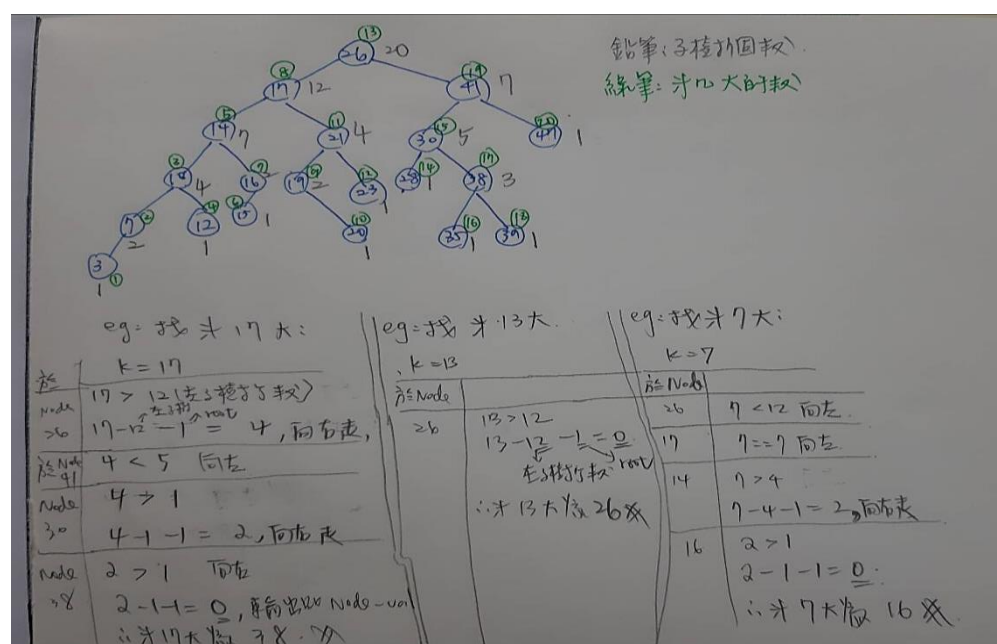 鉛筆:子樹的個數
綠筆:第几大的數
⑬
26 20
⑧
17 12
41 7
⑤
14 7
⑪
21 4
30 5
47 1
4
⑦
16
19 2
⑫
23 1
28 ⑭ 1
⑰
38 3
7 ② 2
④
12 1
⑥
15 1
⑩
20 1
⑯
35 1
39 1
3 ①
1
eg=找第17大:
k=17
於Node 26
17>12(左子樹的個數)
左子樹 root
17-12-1=4,向右走,
於Node 41
4<5 向左
Node 30
4>1
4-1-1=2,向右走
Node 38
2>1
2-1-1=0,輸出此Node-val
∴第17大為38
eg=找第13大.
k=13
於Node
26
13>12
13-12-1=0
左子樹個數 root
∴第13大為26
eg=找第7大:
k=7
於Node
26 7<12 向左.
17 7==7 向左.
14 7>4
7-4-1=2,向右走
16 2>1
2-1-1=0.
∴第7大為16